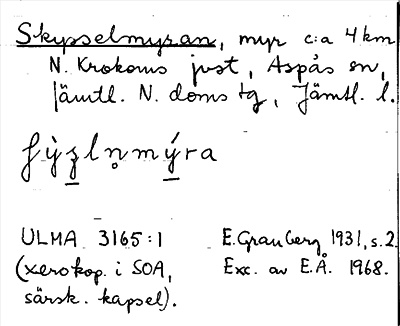 Skypselmyran, myr c:a 4 km
N. Krokoms jvst, Aspås sn,
Jämtl. N. doms tg, Jämtl. l.
ULMA 3165:1
(xerokop. i SOA,
särsk. kapsel).
E. Granberg 1931, s. 2.
Exc. av E.Å. 1968.